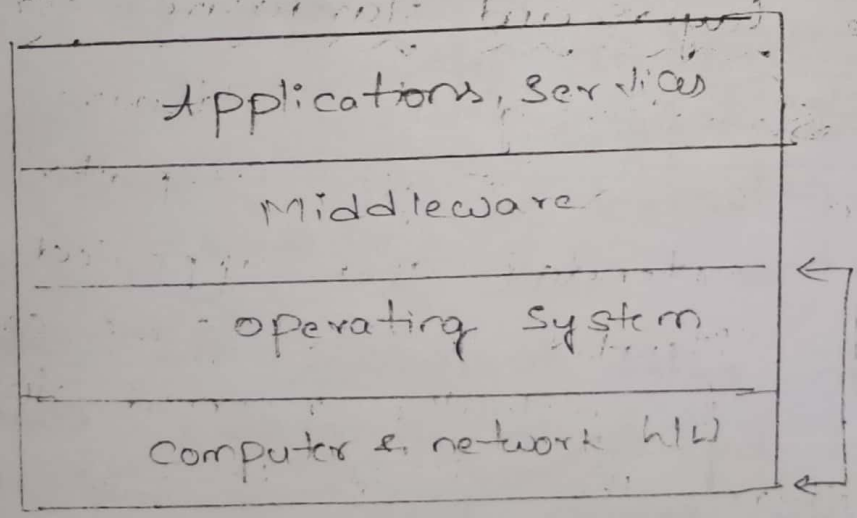 Applications, Services
Middleware
operating system
Computer & network h/w